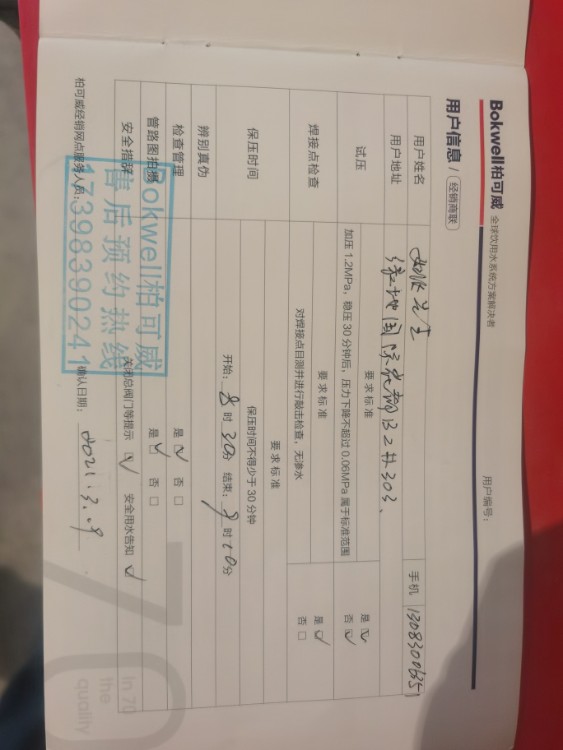 Bokwell柏可威 全球饮用水系统方案解决者
用户编号：
用户信息 / 经销商联
用户姓名 先生 手机 13083006351
用户地址 绿地国际花都B2栋303
试压 要求标准 是
加压 1.2MPa，稳压 30 分钟后，压力下降不超过 0.06MPa 属于标准范围 否
焊接点检查 要求标准 是
对焊接点目测并进行敲击检查，无渗水 否
保压时间 要求标准
保压时间不得少于 30 分钟
开始：8 时 30分 结束：9 时 10分
辨别真伪
检查管理 是 否
管路图拍摄 是 否
安全措辞 关闭总阀门等提示 安全用水告知
柏可威经销网点服务人员： 确认日期：2021.3.09
Bokwell柏可威
售后预约热线
17398390241
70
In 70
the
quality